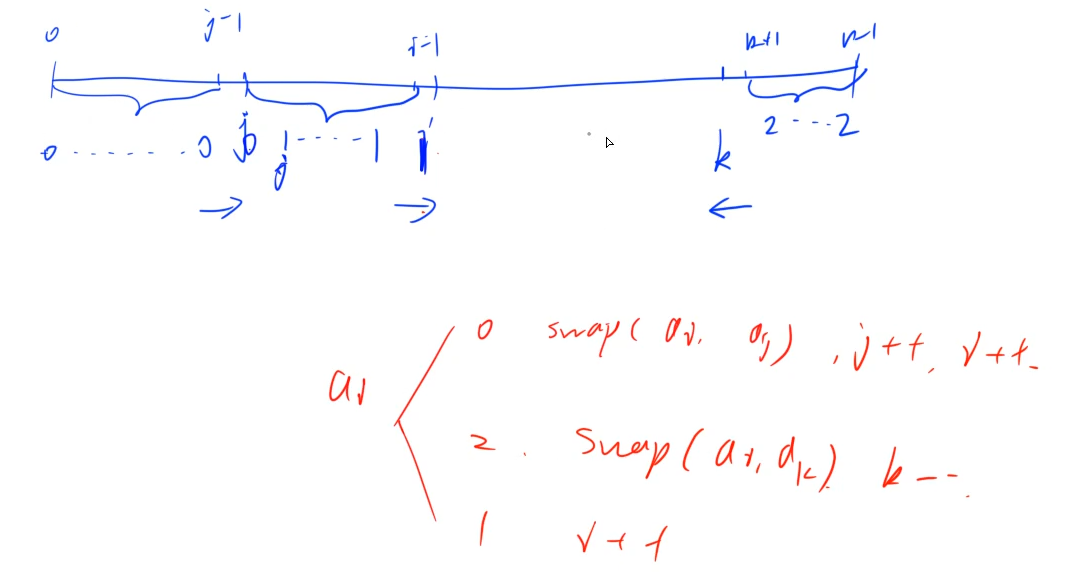 0 j-1 i-1 k+1 n-1
0 ------- 0 j 1 ---- 1 i k 2 ---- 2
0 swap( ai, aj) , j++, i++.
ai
2. Swap(ai, ak) k--.
1 i++